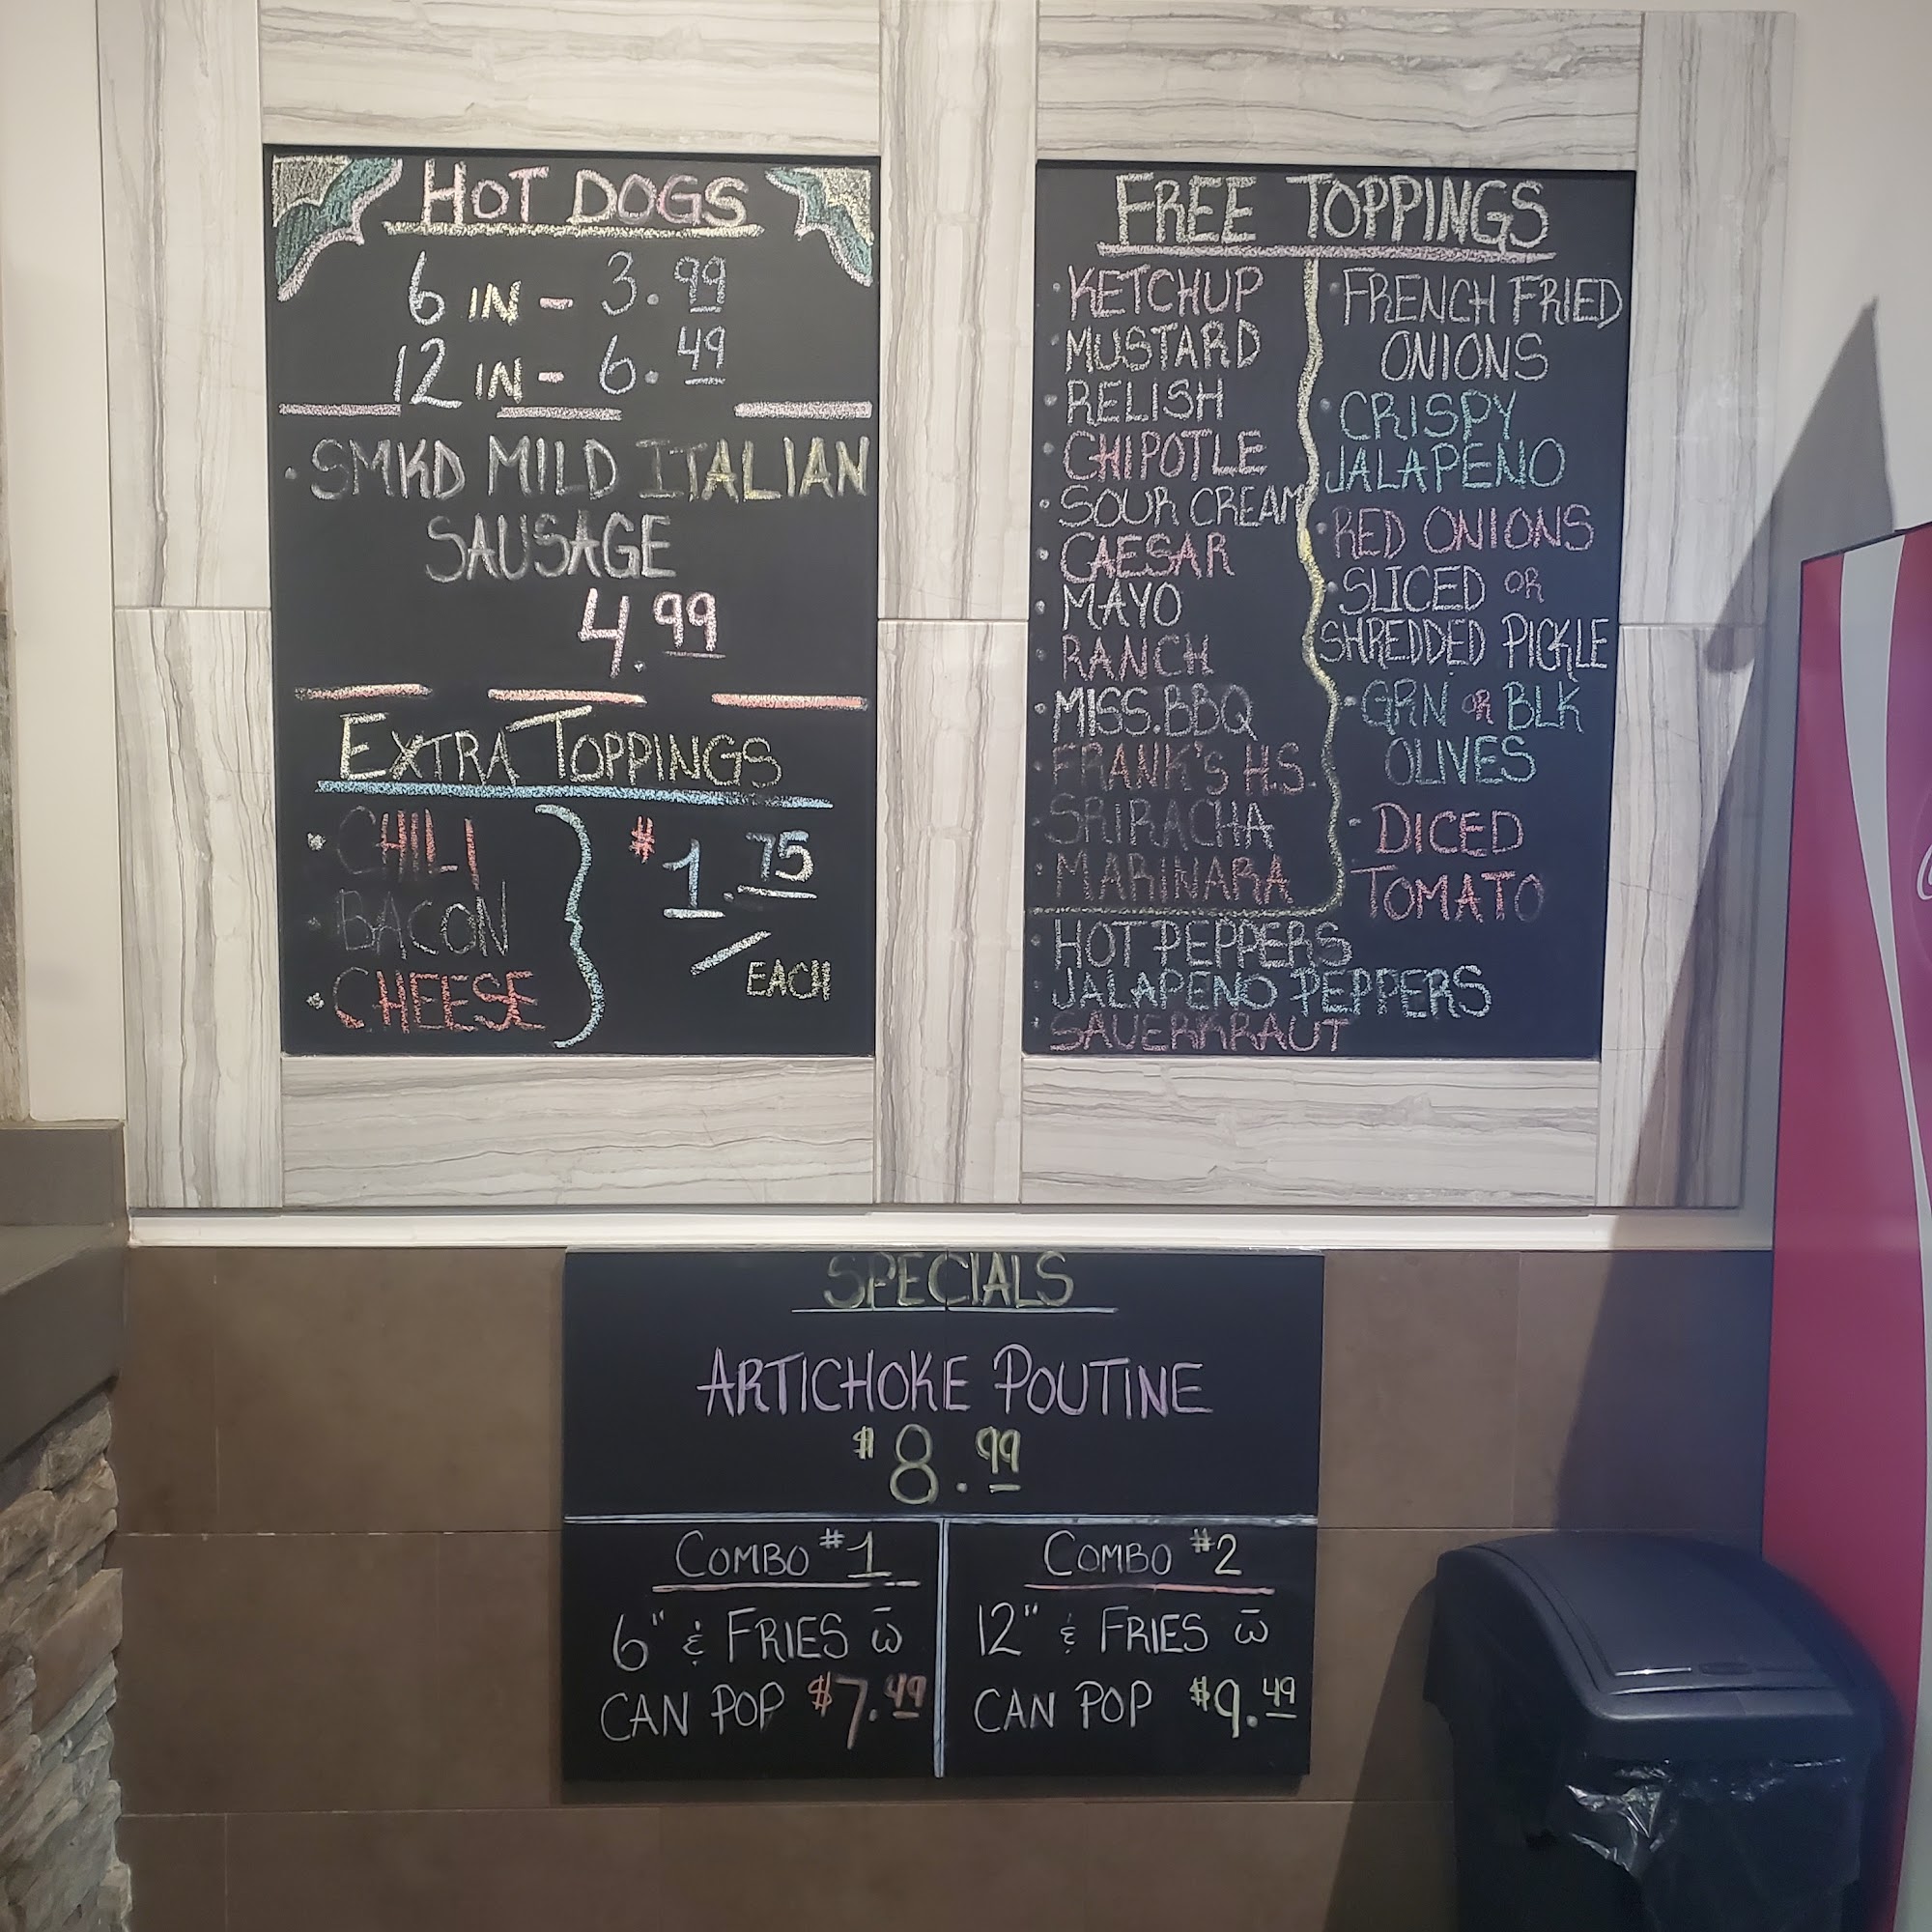 HOT DOGS
6 IN - 3.99
12 IN - 6.49
· SMKD MILD ITALIAN
SAUSAGE
4.99
EXTRA TOPPINGS
· CHILI
· BACON
· CHEESE
$1.75
/EACH
FREE TOPPINGS
· KETCHUP
· MUSTARD
· RELISH
· CHIPOTLE
· SOUR CREAM
· CAESAR
· MAYO
· RANCH
· MISS. BBQ
· FRANK'S H.S.
· SRIRACHA
· MARINARA
· HOT PEPPERS
· JALAPENO PEPPERS
· SAUERKRAUT
· FRENCH FRIED
ONIONS
· CRISPY
JALAPENO
· RED ONIONS
· SLICED OR
SHREDDED PICKLE
· GRN OR BLK
OLIVES
· DICED
TOMATO
SPECIALS
ARTICHOKE POUTINE
$8.99
COMBO #1
6" & FRIES w̄
CAN POP $7.49
COMBO #2
12" & FRIES w̄
CAN POP $9.49